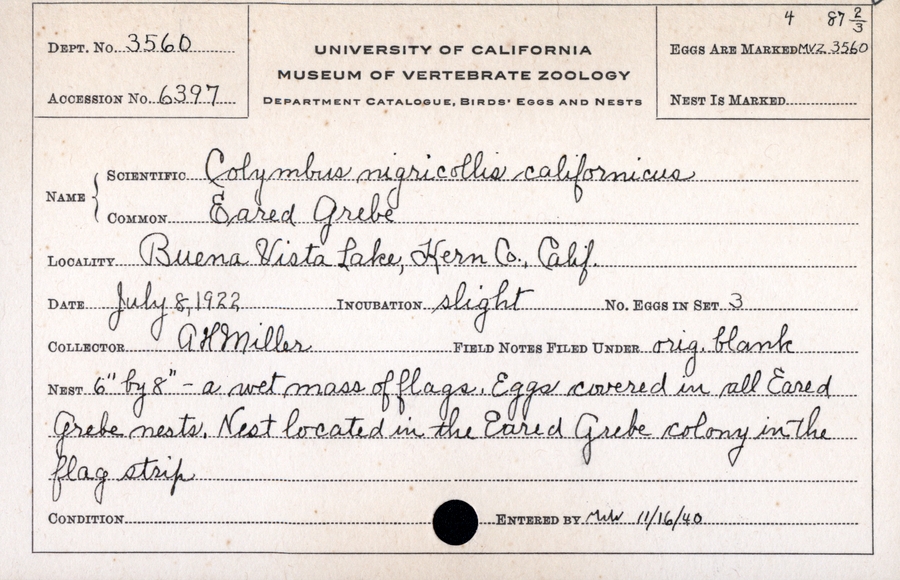 4 87 2/3
DEPT. No. 3560
UNIVERSITY OF CALIFORNIA
EGGS ARE MARKED MVZ 3560
MUSEUM OF VERTEBRATE ZOOLOGY
ACCESSION No. 6397
DEPARTMENT CATALOGUE, BIRDS' EGGS AND NESTS
NEST IS MARKED
NAME
SCIENTIFIC Colymbus nigricollis californicus
COMMON Eared Grebe
LOCALITY Buena Vista Lake, Kern Co., Calif.
DATE July 8, 1922 INCUBATION slight No. EGGS IN SET 3
COLLECTOR AHMiller FIELD NOTES FILED UNDER orig. blank
NEST 6" by 8" - a wet mass of flags. Eggs covered in all Eared
Grebe nests. Nest located in the Eared Grebe colony in the
flag strip
CONDITION ENTERED BY 11/16/40